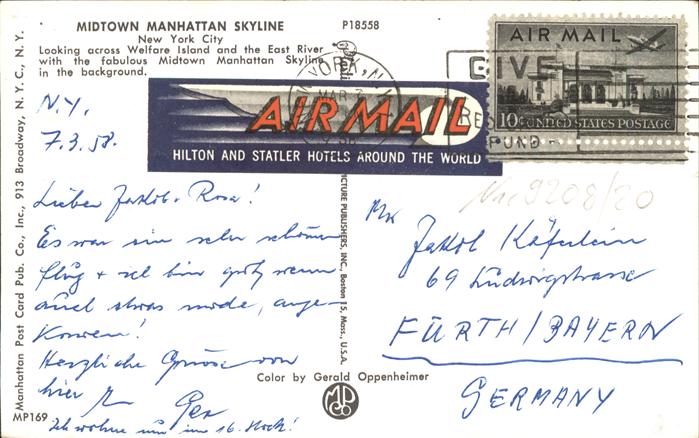 MIDTOWN MANHATTAN SKYLINE
New York City
Looking across Welfare Island and the East River
with the fabulous Midtown Manhattan Skyline
in the background.
P18558
AIR MAIL
10¢ UNITED STATES POSTAGE
GIVE
FUND
AIR MAIL
HILTON AND STATLER HOTELS AROUND THE WORLD
N.Y.
7.3.58.
Lieber Jakob + Rosa!
Es war ein sehr schöner
Flug + bin gut wenn
auch etwas müde, ange-
kommen!
Herzliche Grüsse von
hier
Ich wohne nun im 16. Stock!
Jakob
69 Ludwigstrasse
FÜRTH/BAYERN
GERMANY
9208/20
Manhattan Post Card Pub. Co., Inc., 913 Broadway, N.Y.C., N.Y.
PICTURE PUBLISHERS, INC. Boston 15, Mass., U.S.A.
Color by Gerald Oppenheimer
MP169